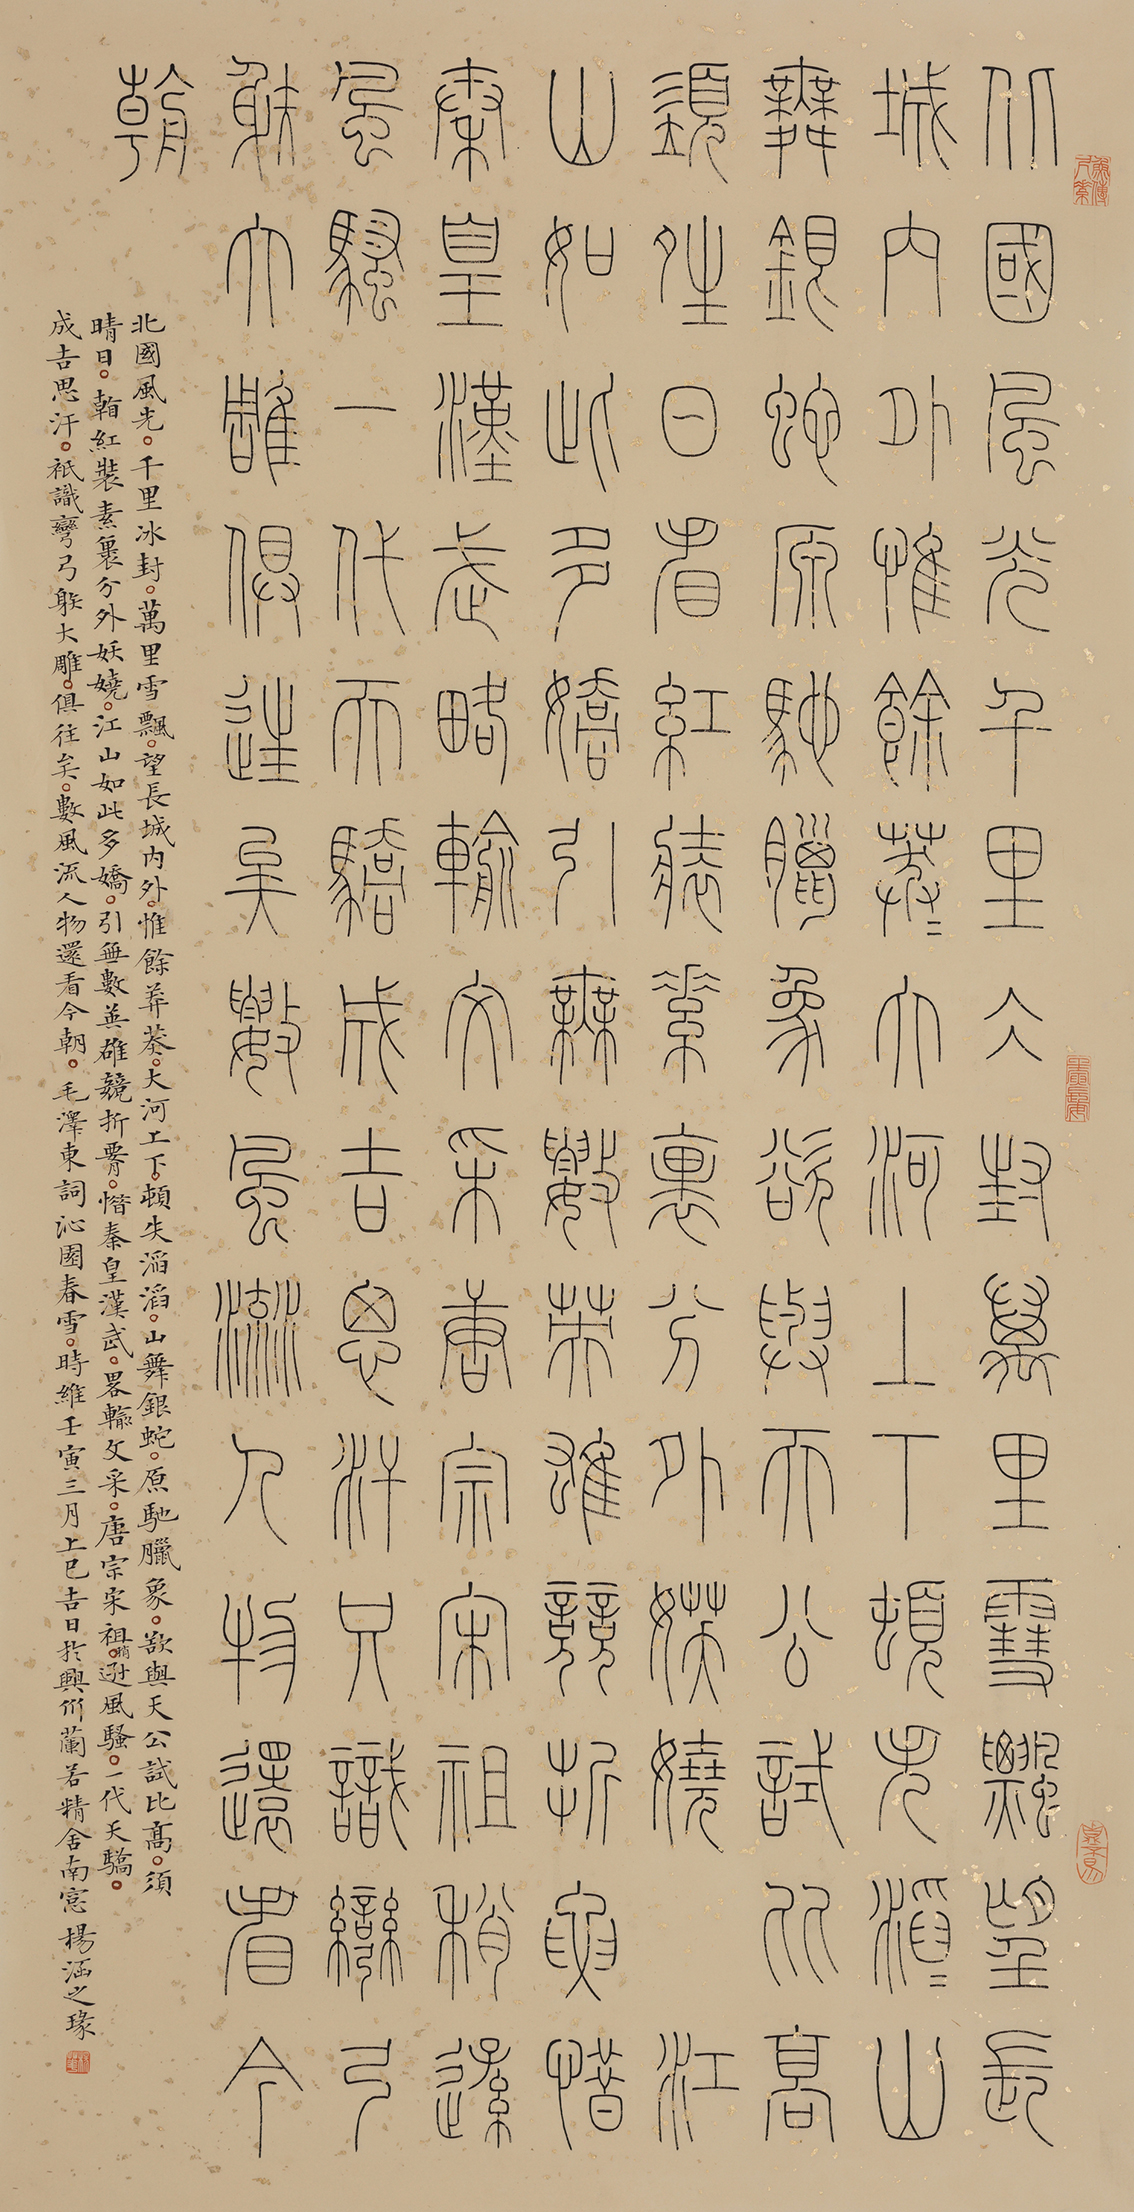 北國風光千里仌封萬里雪飄望長
城內外惟餘莽〻大河上下頓失滔〻山
舞銀蛇原馳臘象欲與天公試比高
須晴日看紅裝素裹分外妖嬈江
山如此多嬌引無數英雄競折要惜
秦皇漢武略輸文采唐宗宋祖稍遜
風騷一代天驕成吉思汗只識彎弓
躲大雕俱往矣數風流人物還看今
朝
北國風光千里冰封萬里雪飄望長城內外惟餘莽莽大河上下頓失滔滔山舞銀蛇原馳臘象欲與天公試比高須
晴日看紅裝素裹分外妖嬈江山如此多嬌引無數英雄競折要惜秦皇漢武畧輸文采唐宗宋祖稍遜風騷一代天驕
成吉思汗祇識彎弓躲大雕俱往矣數風流人物還看今朝毛澤東詞沁園春雪時維壬寅三月上巳吉日於興州蘭若精舍南窗楊涵之瑑